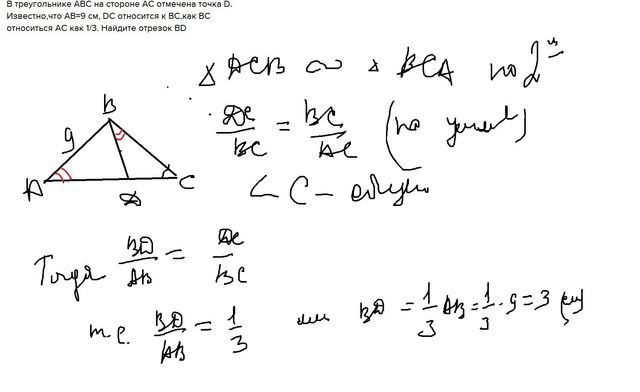 В треугольнике ABC на стороне AC отмечена точка D.
Известно,что AB=9 см, DC относится к BC,как BC
относиться AC как 1/3. Найдите отрезок BD
Δ DCB ∞ Δ BCA по 2 м
DC/BC = BC/AC (по условию)
∠C - общий
B
9
A
D
C
Тогда BD/AB = DC/BC
т.е. BD/AB = 1/3 или BD = 1/3 AB = 1/3 · 9 = 3 (см)